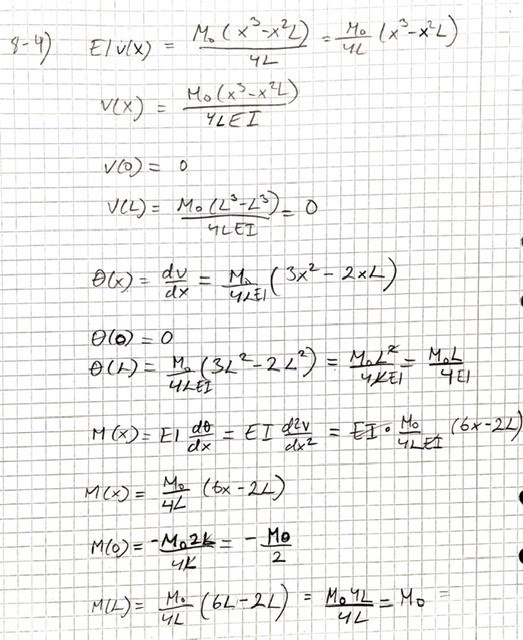 8-4) EIv(x) = M₀(x³-x²L)/4L = M₀/4L (x³-x²L)
v(x) = M₀(x³-x²L)/4LEI
v(0) = 0
v(L) = M₀(L³-L³)/4LEI = 0
θ(x) = dv/dx = M₀/4LEI (3x² - 2xL)
θ(0) = 0
θ(L) = M₀/4LEI (3L² - 2L²) = M₀L²/4LEI = M₀L/4EI
M(x) = EI dθ/dx = EI d²v/dx² = EI · M₀/4LEI (6x-2L)
M(x) = M₀/4L (6x-2L)
M(0) = -M₀2L/4L = - M₀/2
M(L) = M₀/4L (6L-2L) = M₀4L/4L = M₀ =